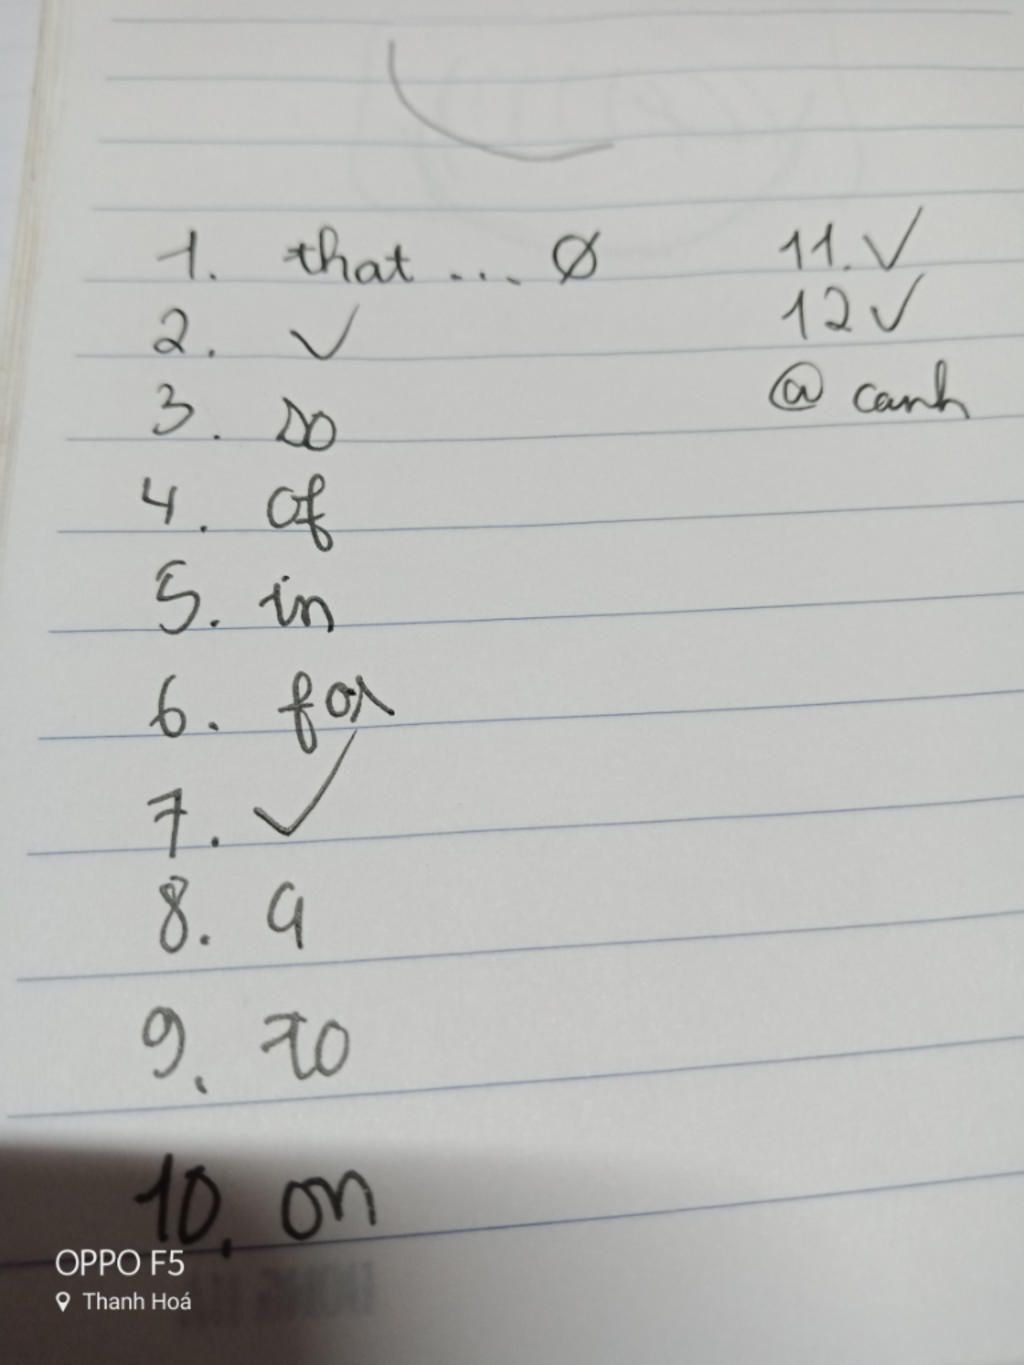 1. that ... Ø
2. ✓
3. so
4. of
5. in
6. for
7. ✓
8. a
9. to
10. on
11. ✓
12 ✓
@ canh
OPPO F5
Thanh Hoá